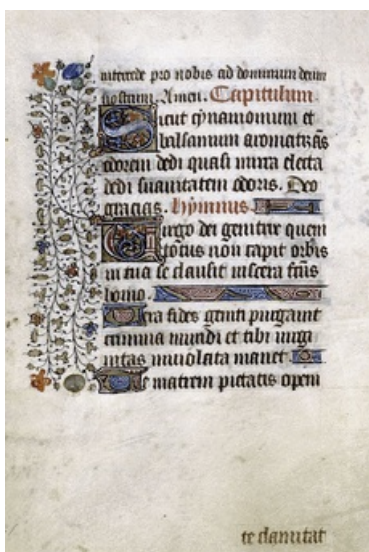 intercede pro nobis ad dominum deum
nostrum. Amen. Capitulum
Sicut cynamomum et
balsamum aromatizās
odorem dedi quasi mirra electa
dedi suavitatem odoris. Deo
gracias. Hymnus.
Virgo dei genitrix quem
totus non capit orbis
in tua se clausit viscera factus
homo.
Vera fides geniti purgavit
crimina mundi et tibi virgi
nitas inviolata manet
Te matrem pietatis opem
te clamitat